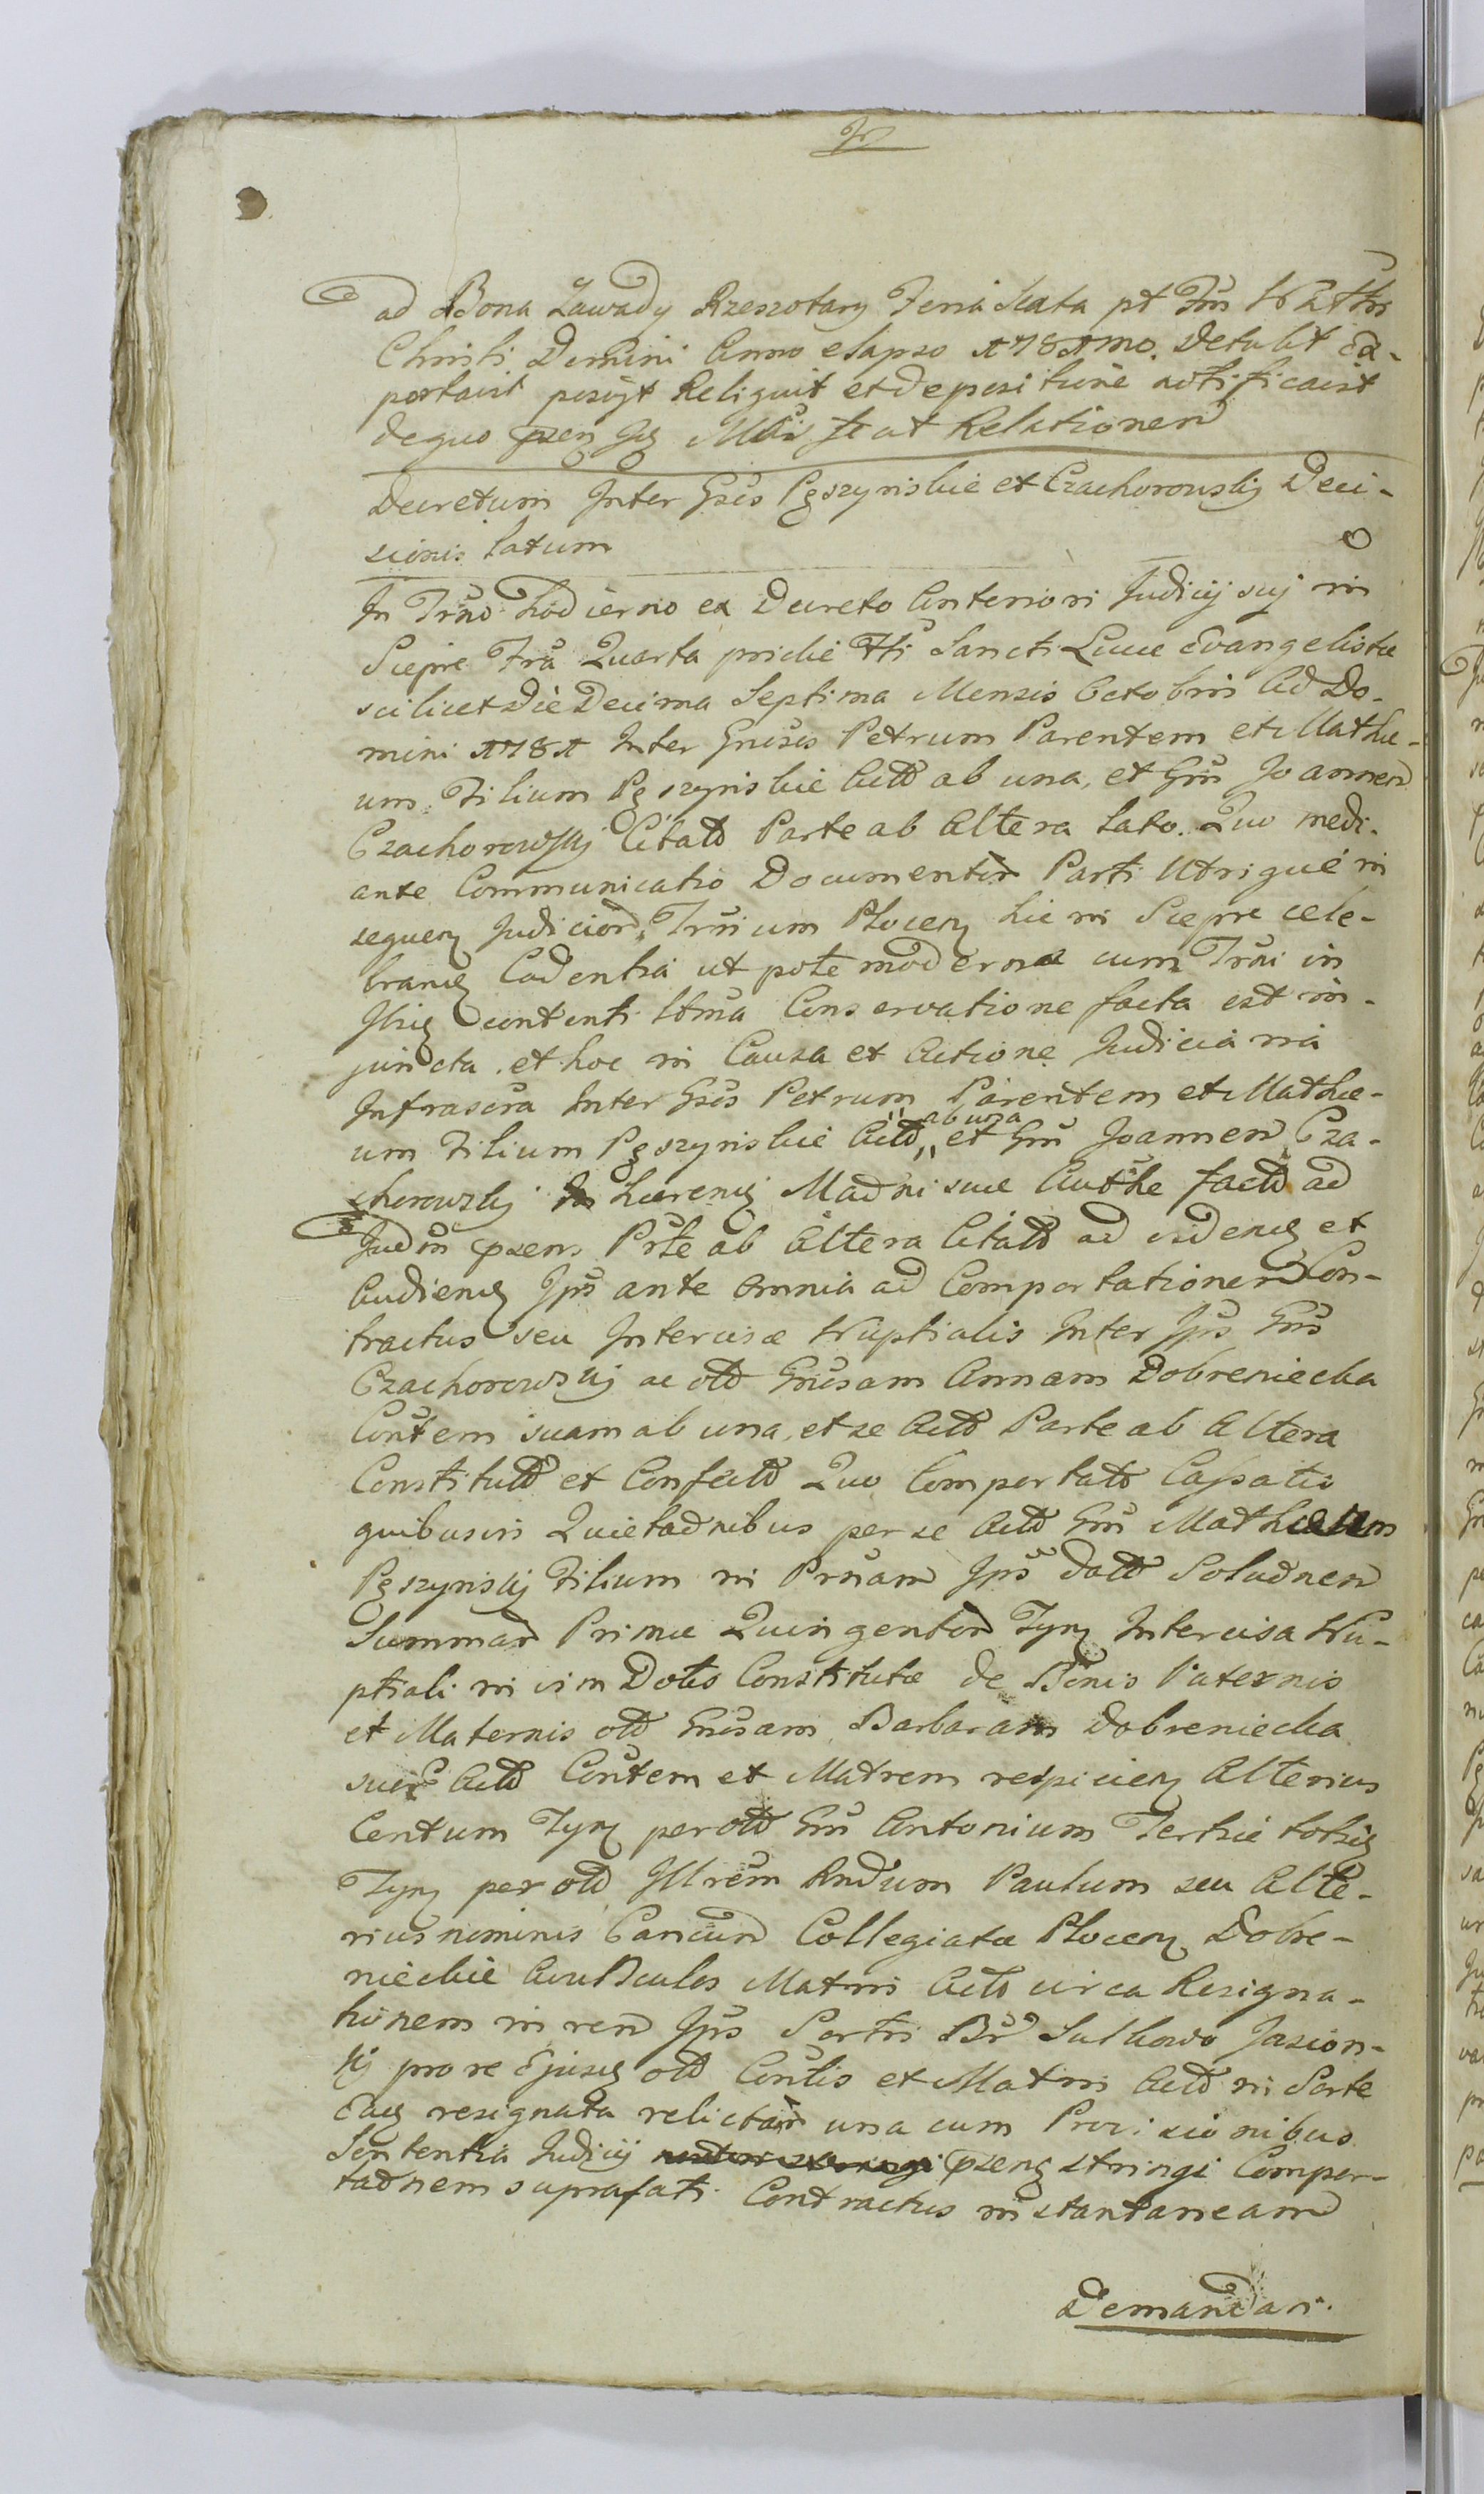 ad Bona Zawady Rzeszotary Feria Sexta pt Ftũ Natthis
Christi Domini Anno elapso 1781mo. Detulit Ex-
portavit posuit Reliquit et depositione notificavit
de quo psen Juž Mãi fecit Relationem
Decretum Inter Gsos Pęszynskie et Czachorowskij Deci-
sionis latum
In Trño hodierno ex Decreto Anteriori Judicij suj in
Sieprc Fria Quarta pridie Fti Sancti Lucae Evangelistae
scilicet Die Decima Septima Mensis Octobris Ad Do-
mini 1781 Inter Gnosos Petrum Parentem et Mathae-
um Filium Pęszynskie Actõ ab una, et Gñm Joannem
Czachorowskij Citatõ Parte ab Altera lato. Quo medi-
ante Communicatio Documentor Parti Utrique in
sequen Judicior Trñium Plocen hic in Sieprc cele-
brand Cadentia ut pote moderna cum Trñi in
contenti ltma Conservatione facta est in-
juncta. et hoc in Causa et Actione Judiciaria
Infrascra Inter Gsos Petrum Parentem et Mathae-
um Filium Pęszynskie Actõ ab una et Gñm Joannem Cza-
chorowskij haerend Madni suae Authe factõ ad
Judm psens Prte ab Altera Citatõ ad videnq et
Audienq Jps ante omnia ad Comportationem Con-
tractus seu Intercisae Nuptialis Inter Jps Gñs
Czachorowskij ac otõ Gnosam Annam Dobreniecka
Contem suam ab una, et se Actõ Parte ab Altera
Constitutõ et Confectõ Quo Comportatõ Cassatis
quibusvis Quietadnibus per se Actõ Gñm Mathaeum
Pęszynskij Filium in Prsnam Jps datõ Soludnem
Summar Primae Quingentor Tyn Intercisa Nu-
ptiali in vim Dotis Constitutae de Bonis Paternis
et Maternis otõ Gnosam Barbaram Dobreniecka
suer Actõ Contem et Matrem respicien Alterius
Centum Tyn per otõ Gñm Antonium Tertiae totiq
Tyn per otõ Jllrem Rndum Paulum seu Alte-
rius nominis Cancum Collegiatae Plocen Dobre-
nieckie Avunculos Matris Actõ circa Resigna-
tionem in rem Jps Sortis Br Sulkowo Jasion-
kj pro re Ejusq otõ Contis et Matris Actõ in Sorte
Eaq resignata relictar una cum Provisionibus
Sententia Judicij psenq stringi Compor-
tadnem suprafati Contractus instantaneam
Demandari.